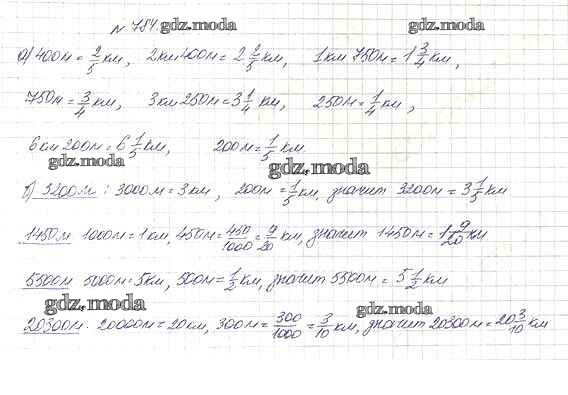 № 784. gdz.moda gdz.moda
а) 400м = 2/5 км, 2км 400м = 2 2/5 км, 1км 750м = 1 3/4 км,
750м = 3/4 км, 3км 250м = 3 1/4 км, 250м = 1/4 км,
6км 200м = 6 1/5 км, 200м = 1/5 км.
gdz.moda gdz.moda
б) 3200м : 3000м = 3км, 200м = 1/5 км, значит 3200м = 3 1/5 км
1450м 1000м = 1км, 450м = 450/1000 = 9/20 км, значит 1450м = 1 9/20 км
5500м 5000м = 5км, 500м = 1/2 км, значит 5500м = 5 1/2 км
gdz.moda gdz.moda
20300м. 20000м = 20км, 300м = 300/1000 = 3/10 км, значит 20300м = 20 3/10 км